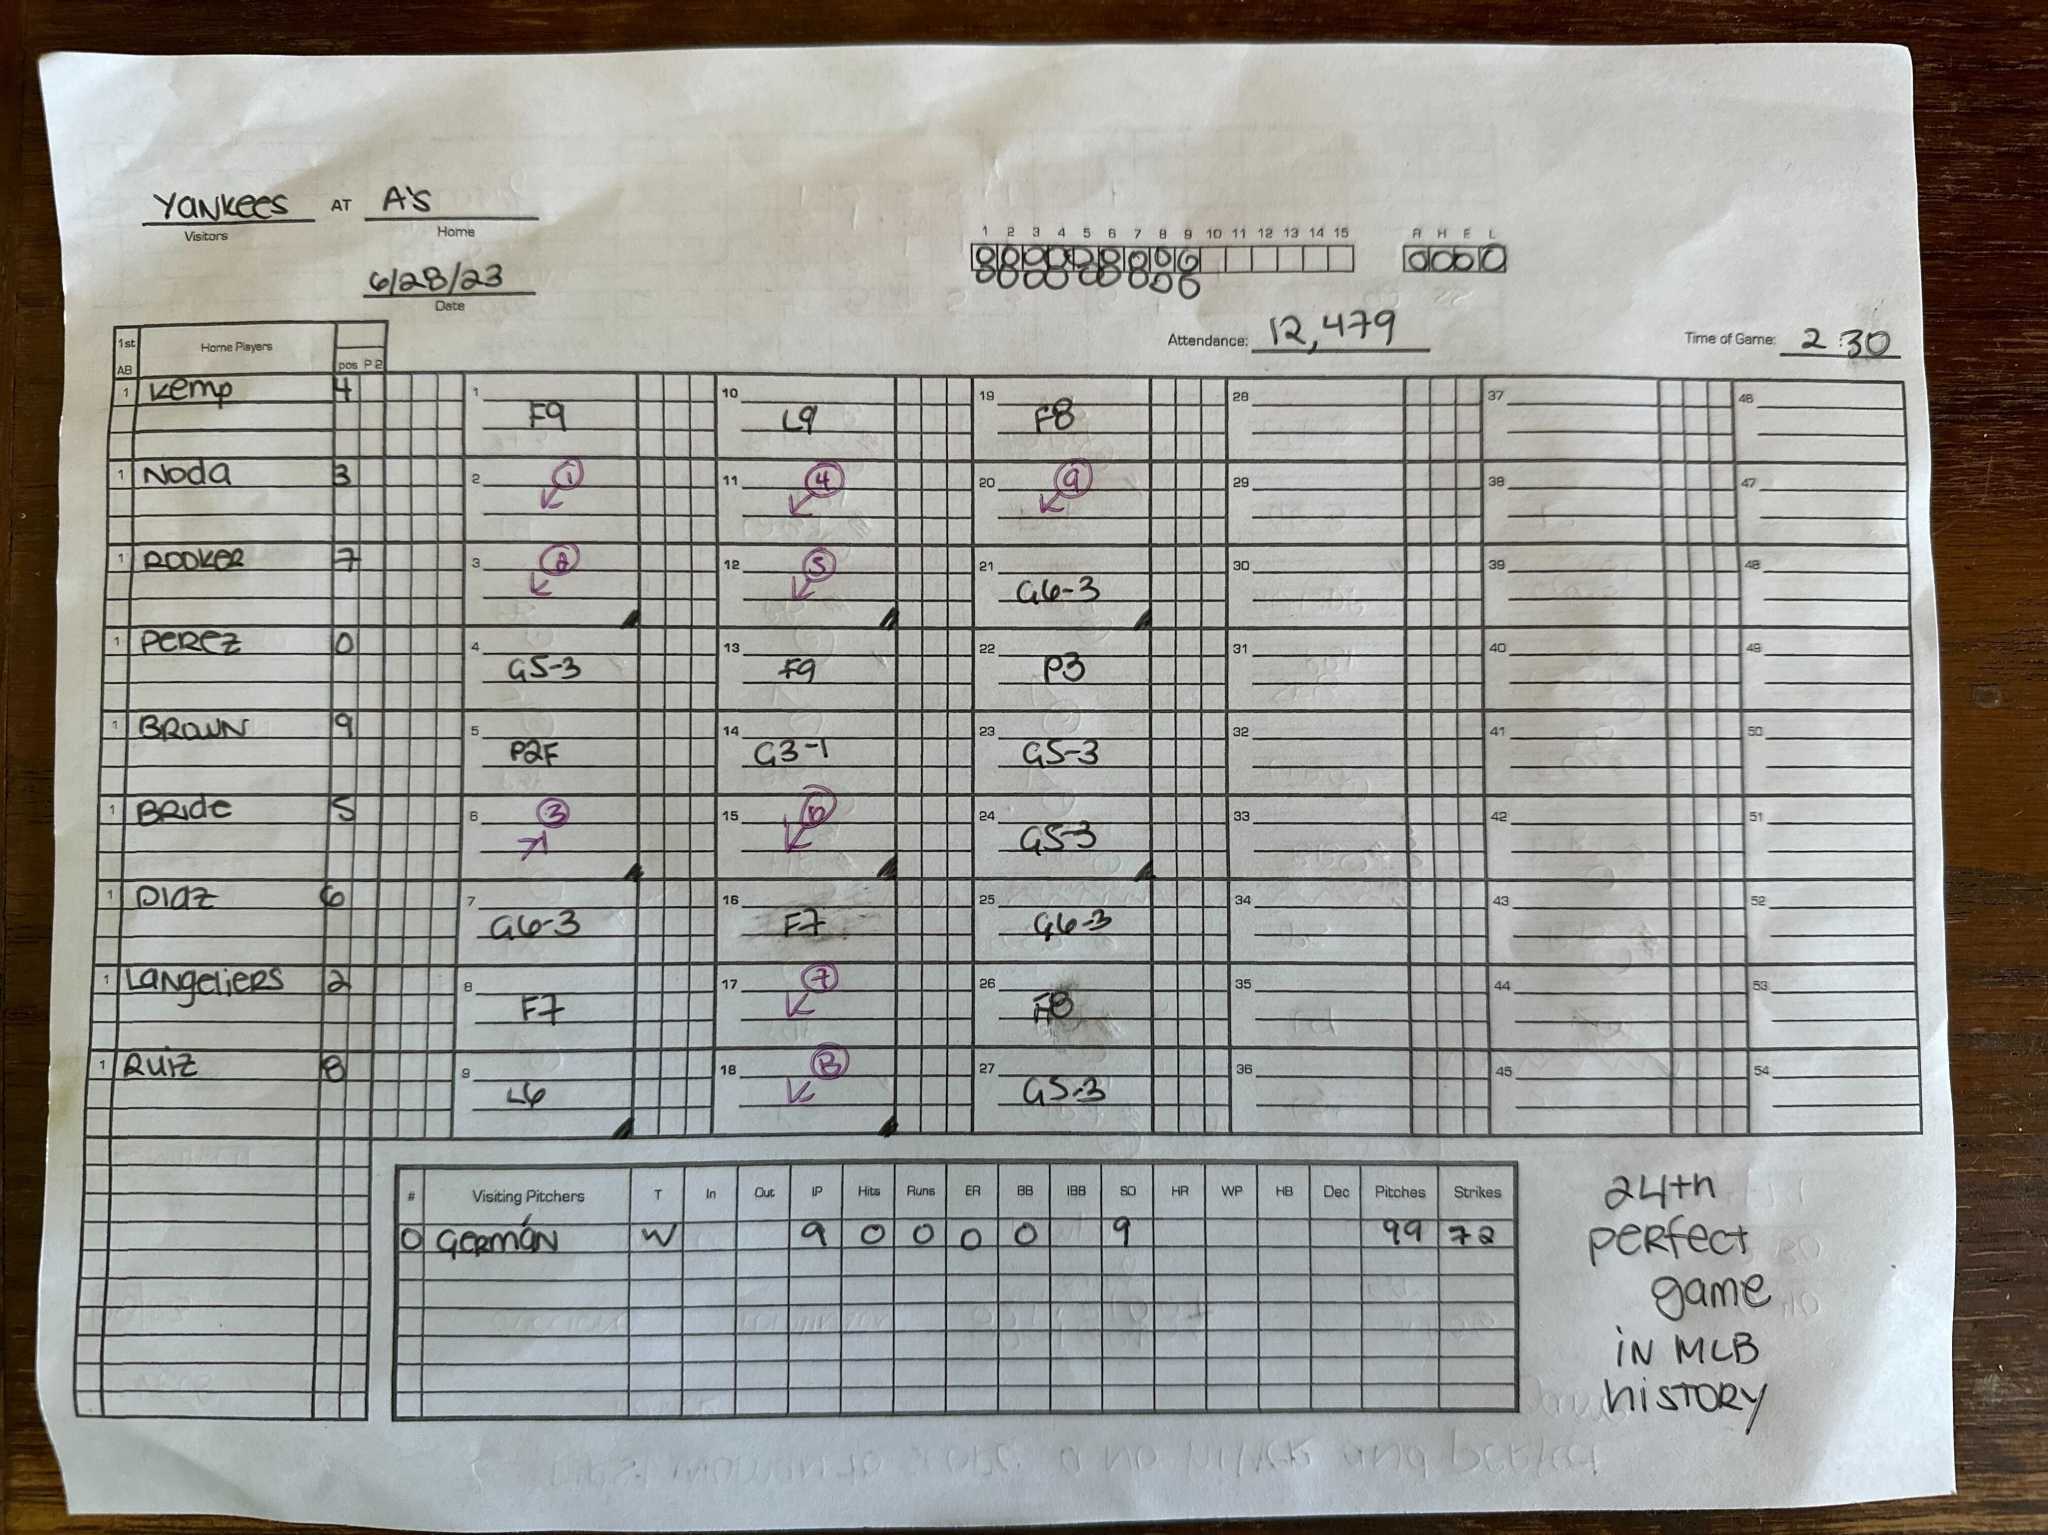 Yankees AT A's
Visitors Home
6/28/23
Date
1 2 3 4 5 6 7 8 9 10 11 12 13 14 15 R H E L
0 0 0 0 0 0 0 0 0 0 0 0 0
0 0 0 0 0 0 0 0 0
Attendance: 12,479 Time of Game: 2:30
1st AB Home Players pos P 2
1 Kemp 4 1 F9 10 L9 19 F8 28 37 46
1 Noda 3 2 1 11 4 20 9 29 38 47
1 Rooker 7 3 2 12 5 21 G6-3 30 39 48
1 Perez 0 4 G5-3 13 F9 22 P3 31 40 49
1 Brown 9 5 P2F 14 G3-1 23 G5-3 32 41 50
1 Bride 5 6 3 15 6 24 G5-3 33 42 51
1 Diaz 6 7 G6-3 16 F7 25 G6-3 34 43 52
1 Langeliers 2 8 F7 17 7 26 F8 35 44 53
1 Ruiz 8 9 L6 18 8 27 G5-3 36 45 54
# Visiting Pitchers T In Out IP Hits Runs ER BB IBB SO HR WP HB Dec Pitches Strikes
0 Germán W 9 0 0 0 0 9 99 72
24th
perfect
game
in MLB
history